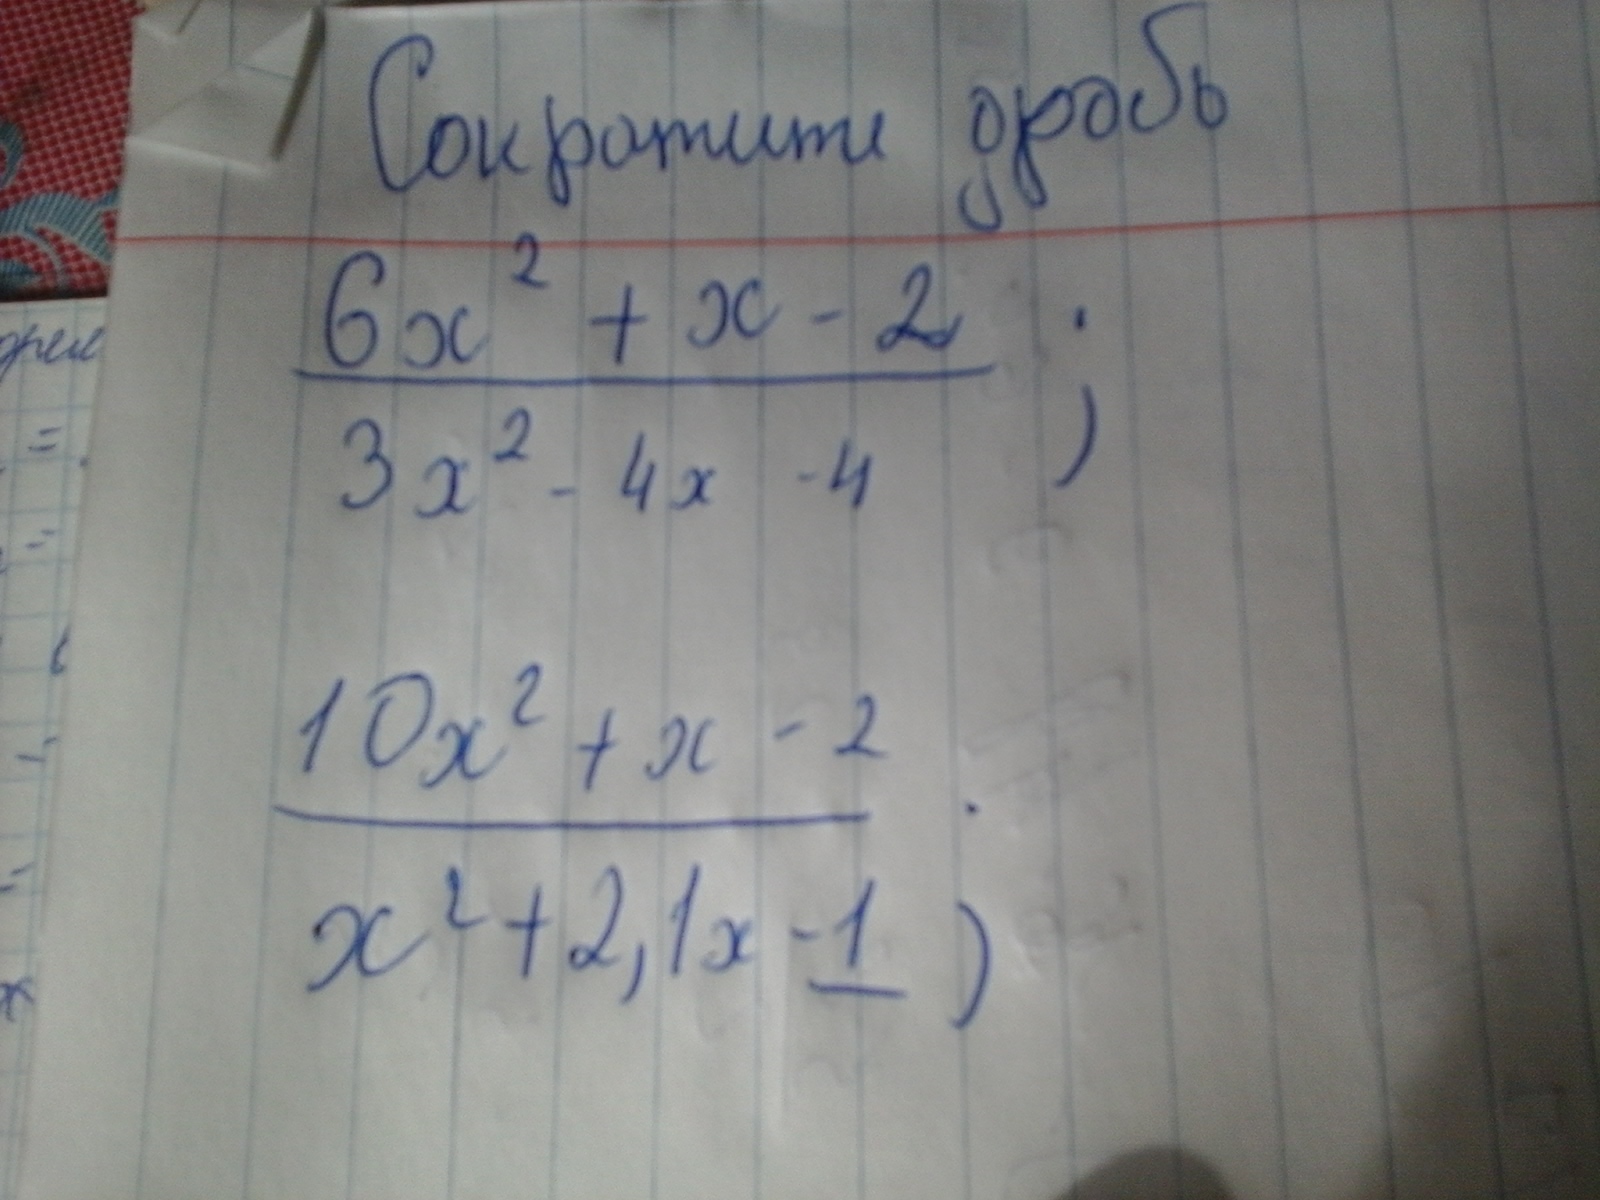 Сократите дробь
6x² + x - 2
3x² - 4x - 4 ;
10x² + x - 2
x² + 2,1x - 1 ;